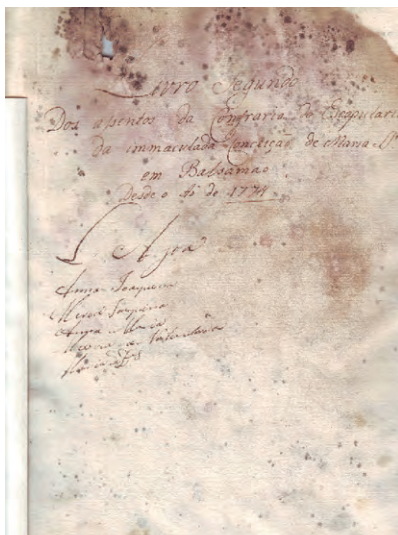 Livro Segundo
Dos assentos da Confraria do Escapulario
da immaculada Conceição de Maria Sª
em Balsamão
Desde o Aº de 1774
L. Agoa
Anna Joaquina
Maria Joaquina
Anna Maria